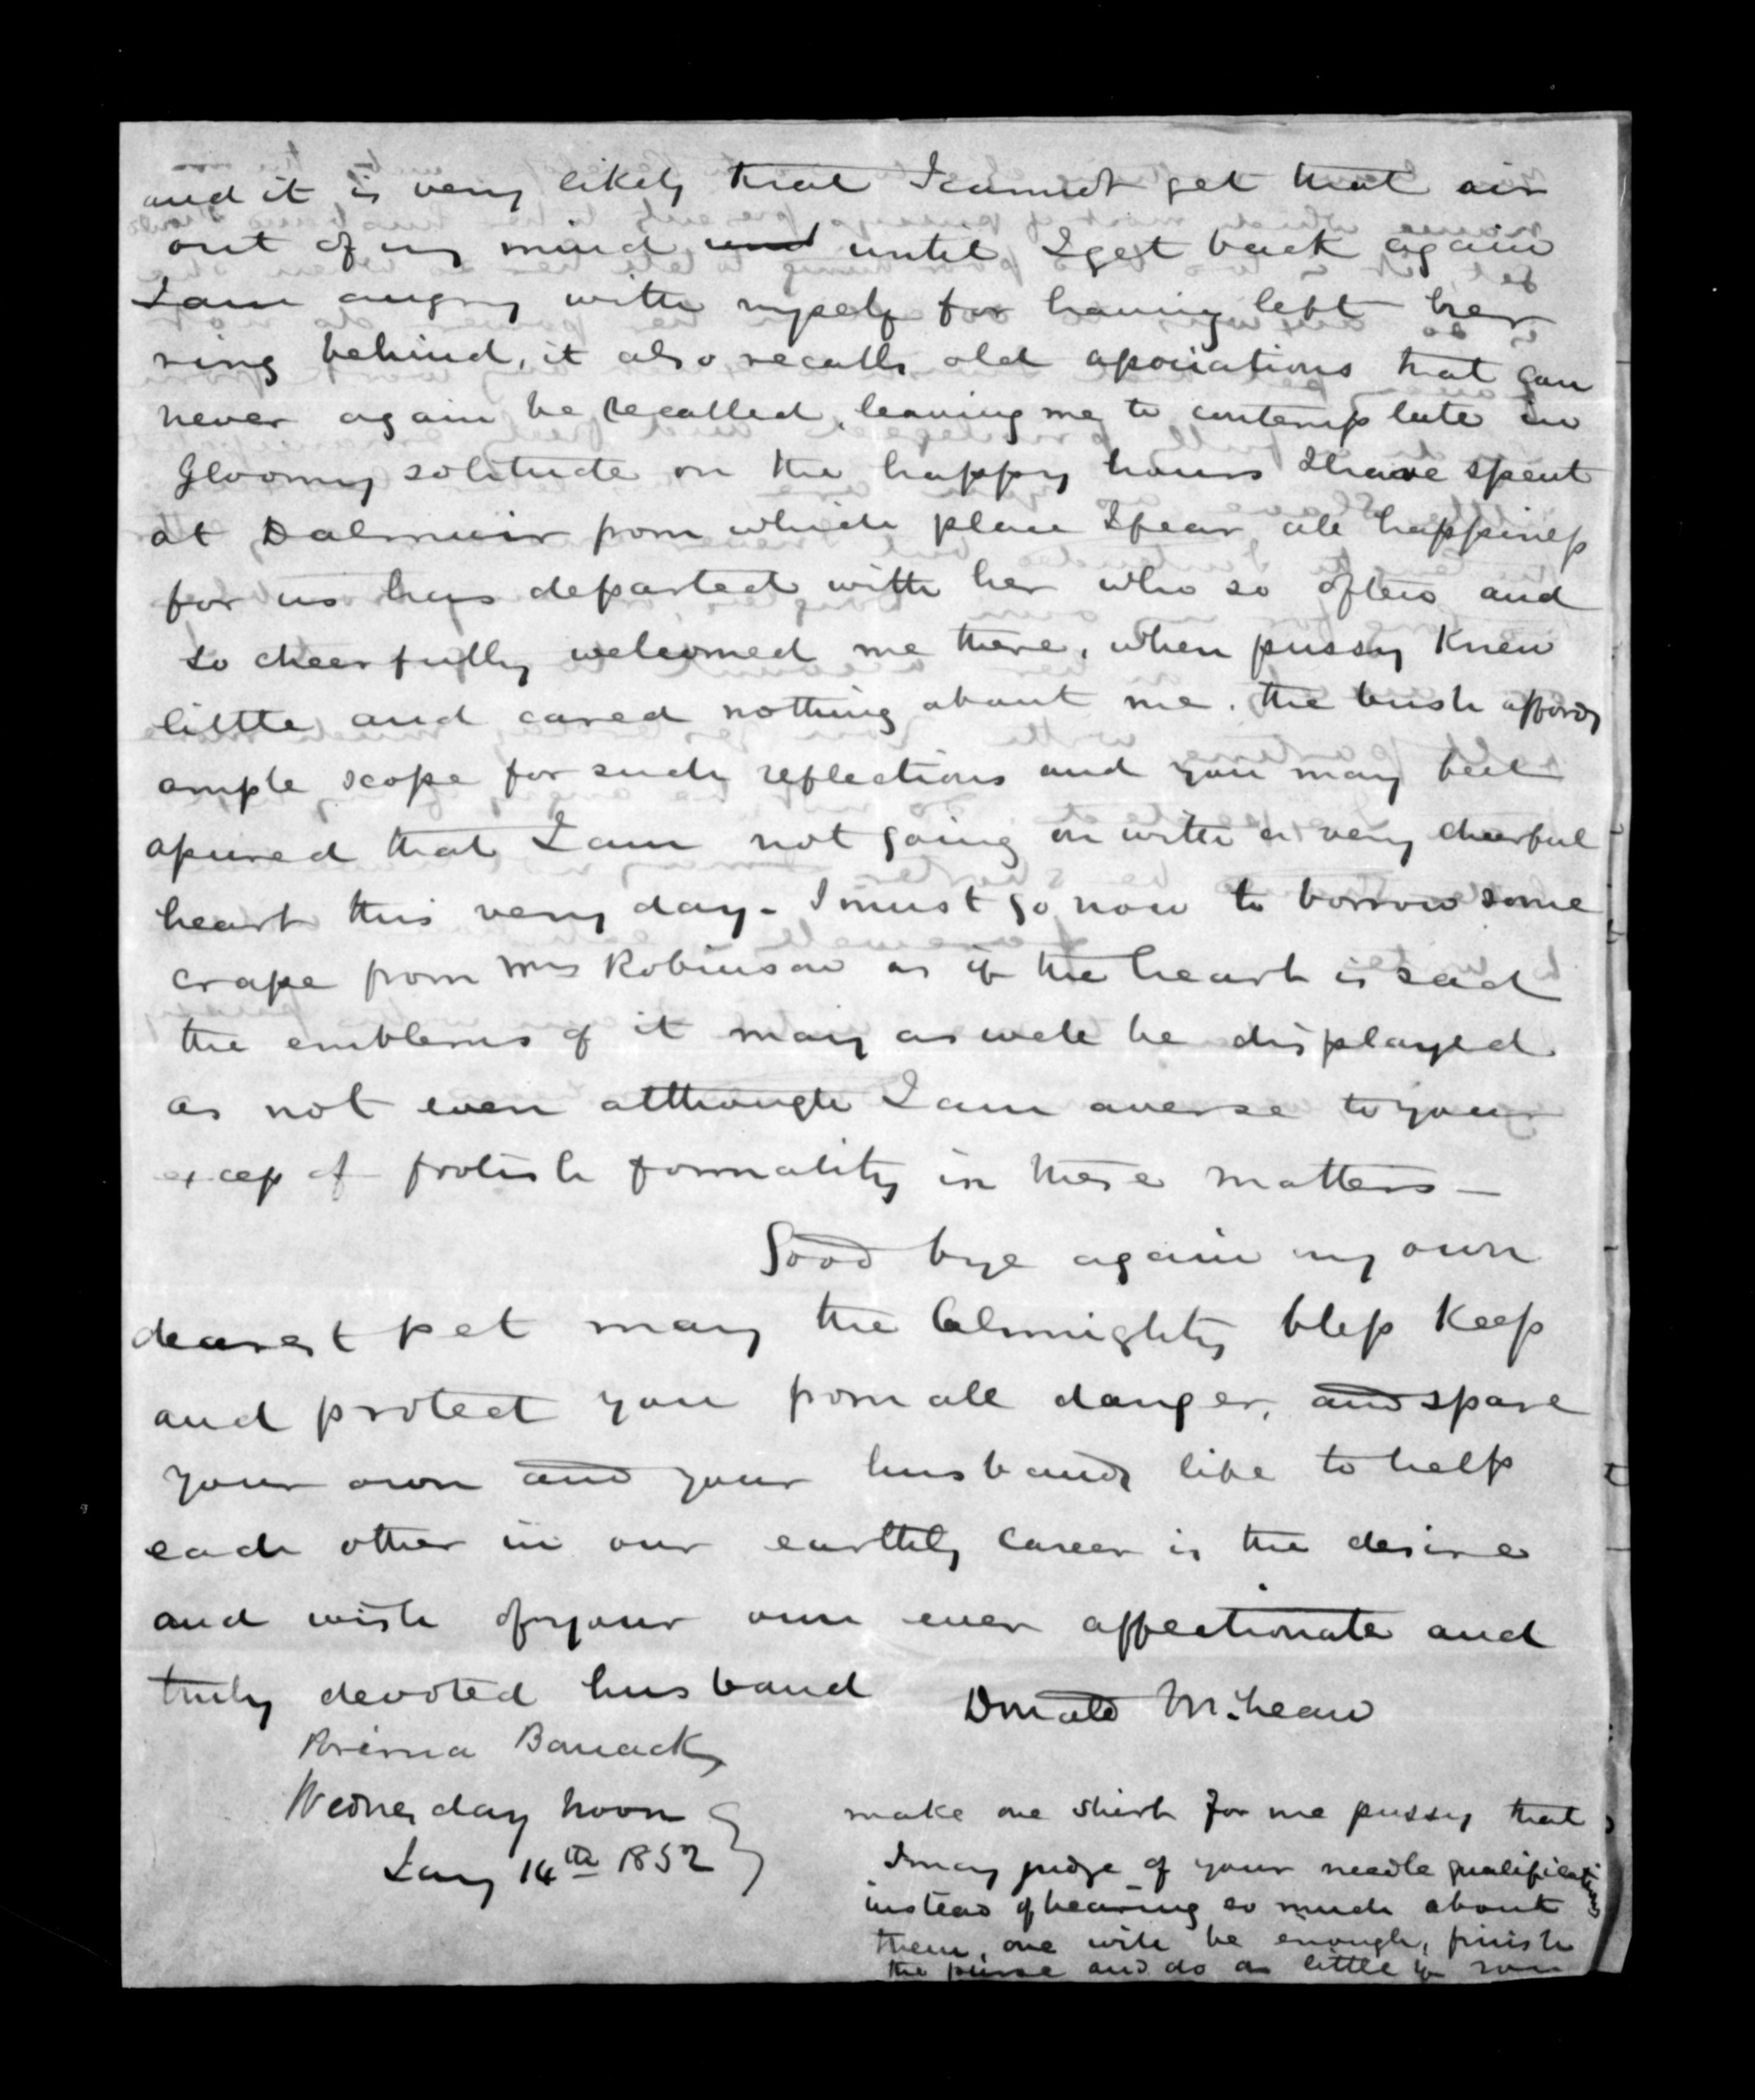 and it is very likely that I cannot get that air
out of my mind until I get back again
I am angry with myself for having left her
ring behind, it also recalls old associations that can
never again be recalled, leaving me to contemplate in
gloomy solitude on the happy hours I have spent
at Dalmuir from which place I fear all happiness
for us has departed with her who so often and
so cheerfully welcomed me there, when pussy knew
little and cared nothing about me. the bush affords
ample scope for such reflections and you may feel
assured that I am not going on with a very cheerful
heart this very day - I must go now to borrow some
crape from Mrs Robinson as if the heart is sad
the emblems of it may as well be displayed
as not even although I am averse to your
excess of foolish formality in these matters -
Good bye again my own
dearest pet may the Almighty bless keep
and protect you from all danger, and spare
your own and your husbands life to help
each other in our earthly career is the desire
and wish of your own ever affectionate and
truly devoted husband Donald McLean
Wednesday noon
Jany 14th 1852
make one shirt for me pussy that
I may judge of your needle qualifications
instead of hearing so much about
them, one will be enough, finish
the purse and do as little